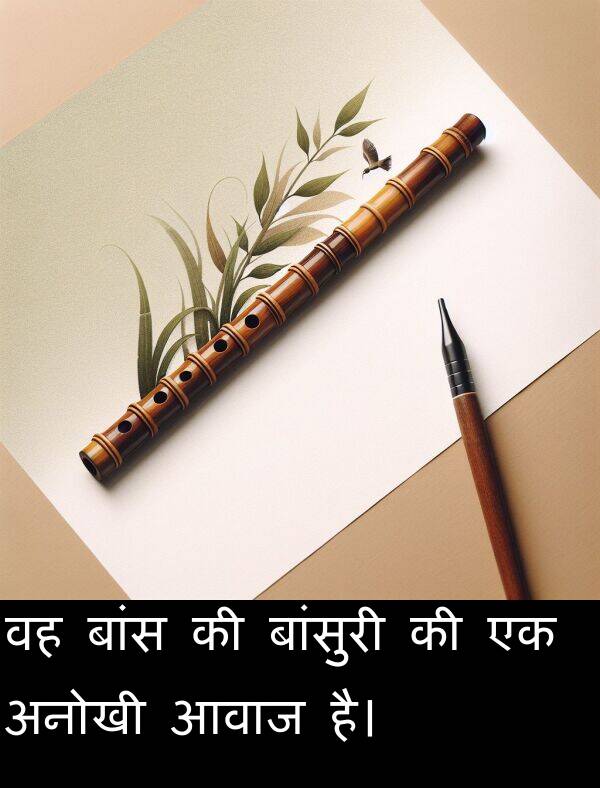 वह बांस की बांसुरी की एक
अनोखी आवाज है।